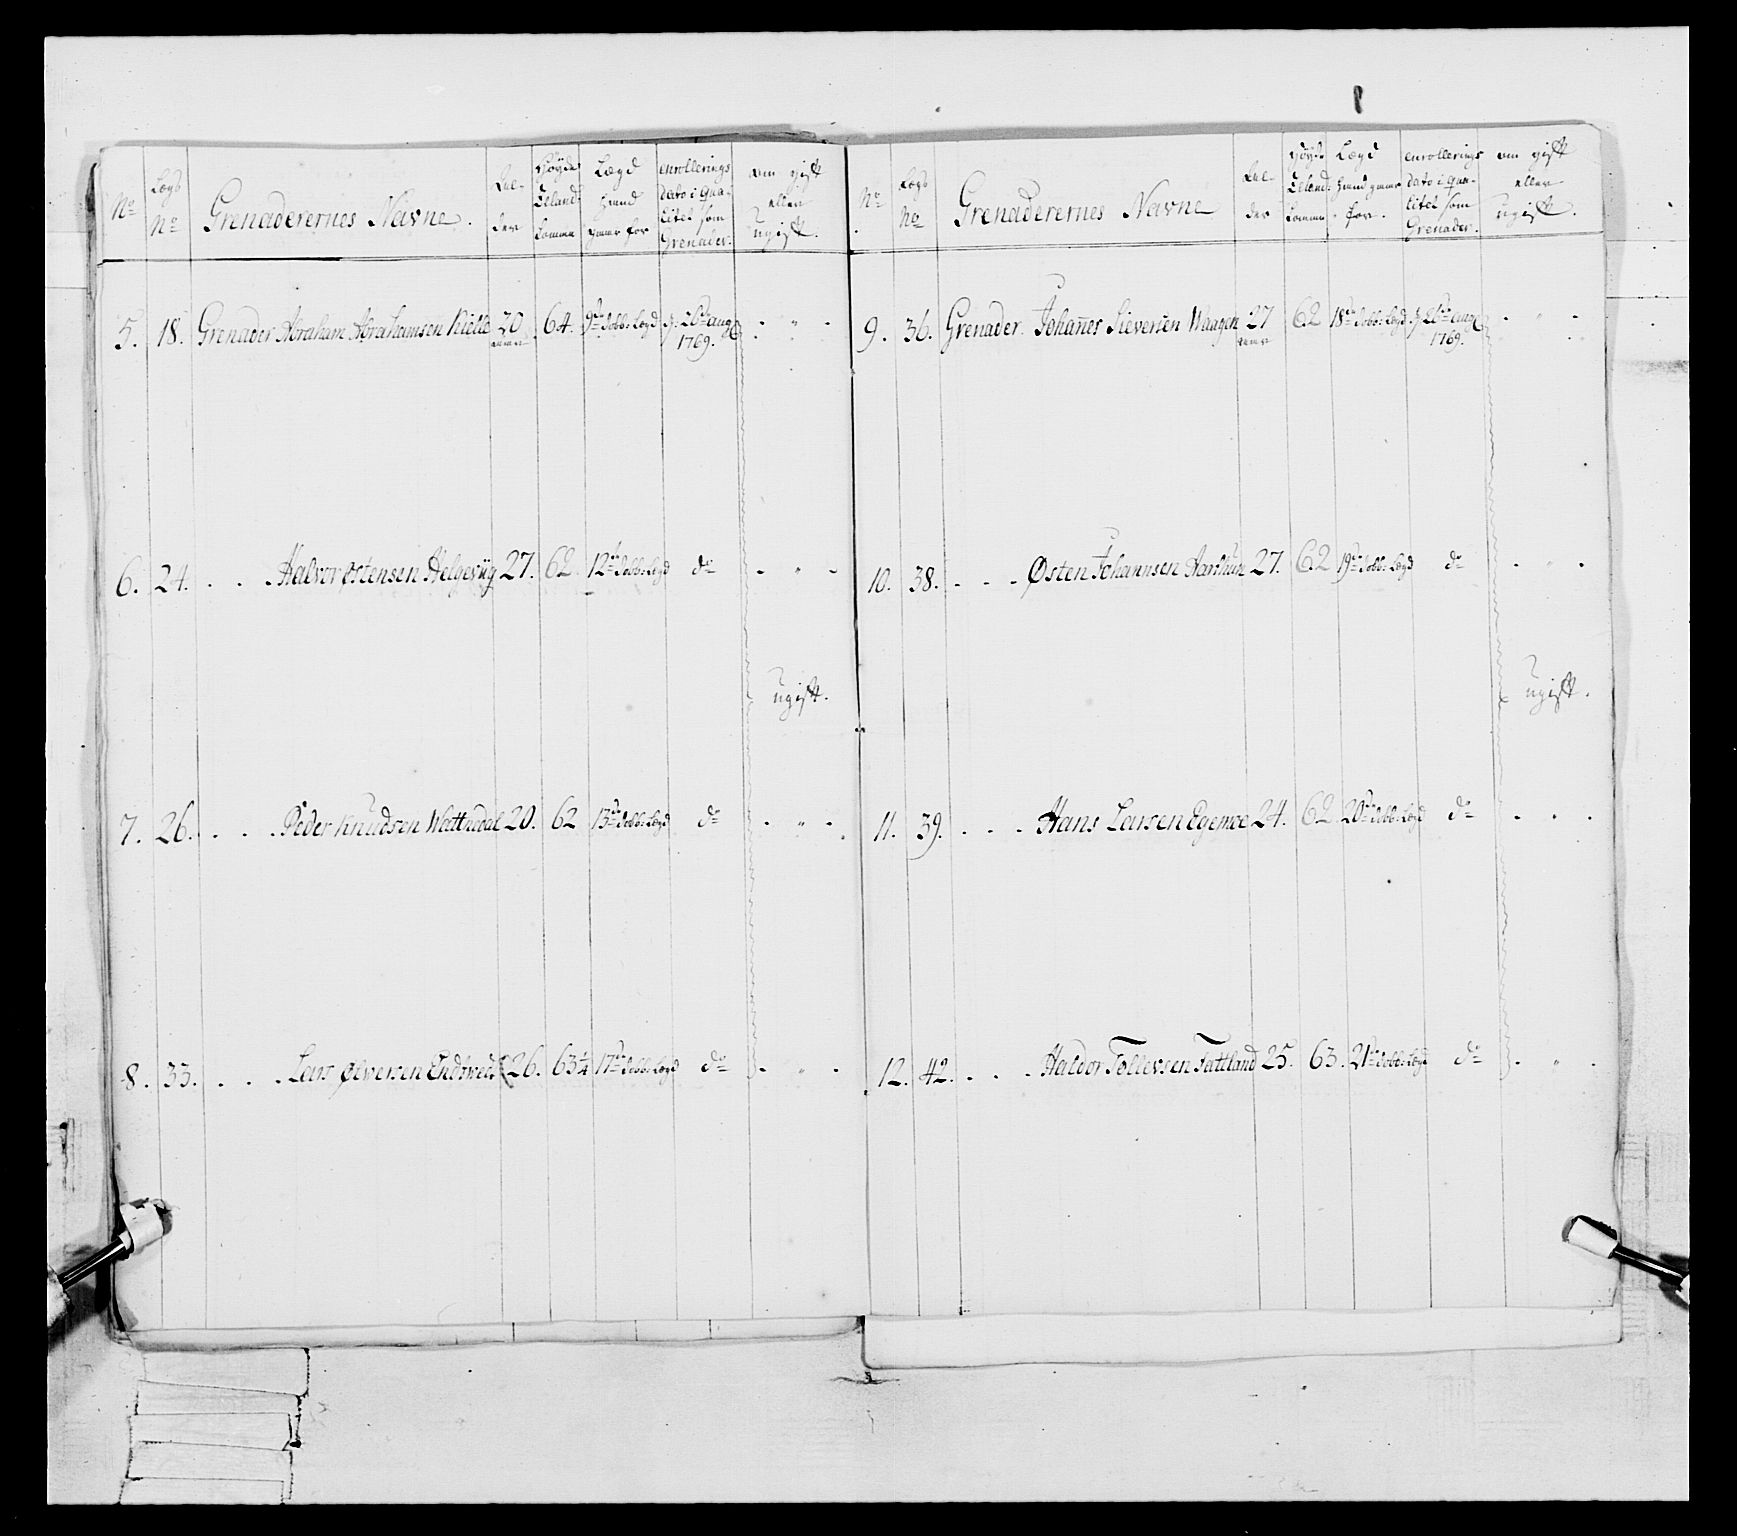 No
Legs No
Grenaderernes Navne.
Al-
der
Høyde
Zeland:
komme
Lægd
hand
er for
enrollerings
dato i qua-
litet som
Grenader.
om gift
eller
ugift.
5. 18. Grenader Abraham Abrahamsen 30 64. 9de dobb: Lægd d. 26de aug - " -
1769.
6. 24. . . . Halvor Østensen Helgevüg 27. 62 12te dobb: Legd do - " -
ugift.
7. 26. . . . Peder Knudsen Watthedal 20. 62 13de dobb: Legd do - " -
8. 33. . . . Lars Ølversen 26. 63¼ 17de dobb: Legd do - " -
No
Legs No
Grenaderernes Navne
Al-
der
Høyde
Zeland:
komme
Lægd
hand er
for.
enrollerings
dato i qua-
litet som
Grenader.
om gift
eller
ugift.
9. 36. Grenader. Johannes Siversen Waagen 27 62 18de dobb: Legd d. 26de aug - " -
1769.
10. 38. - - - Østen Johannsen 27. 62 19de dobb: Legd do - " -
ugift.
11. 39. . . . Hans Larsen Egemoe 24. 62. 20de dobb: Legd do - " -
12. 42. . . . Haldor Tollevsen Tattland 25. 63. 21de dobb: Legd do - " -